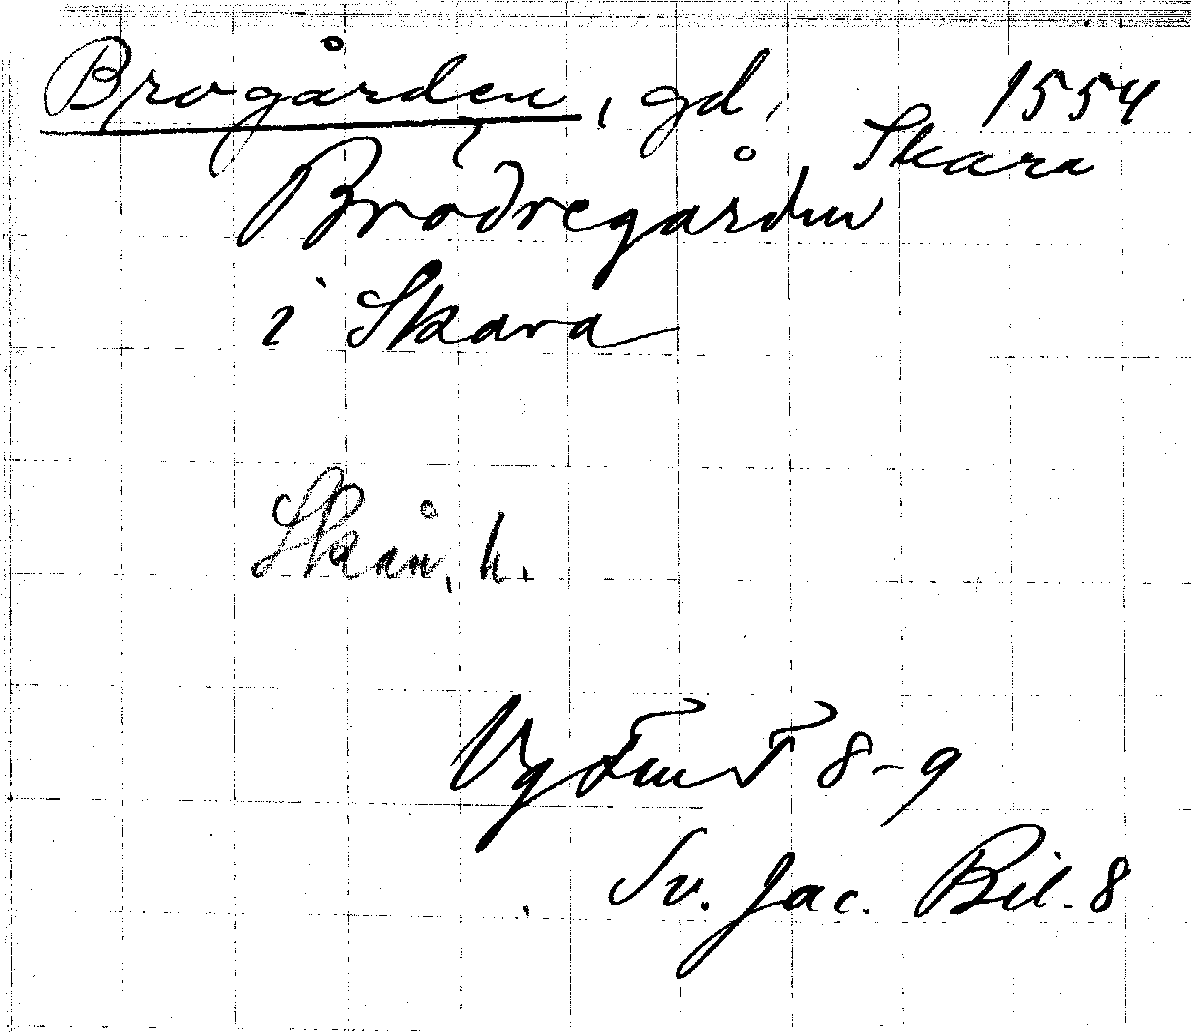 Brogården, gd, 1554
Skara
Brodregården
i Skara
Skån. h.
Vg Fm T 8-9
Sv. Jac. Bil. 8